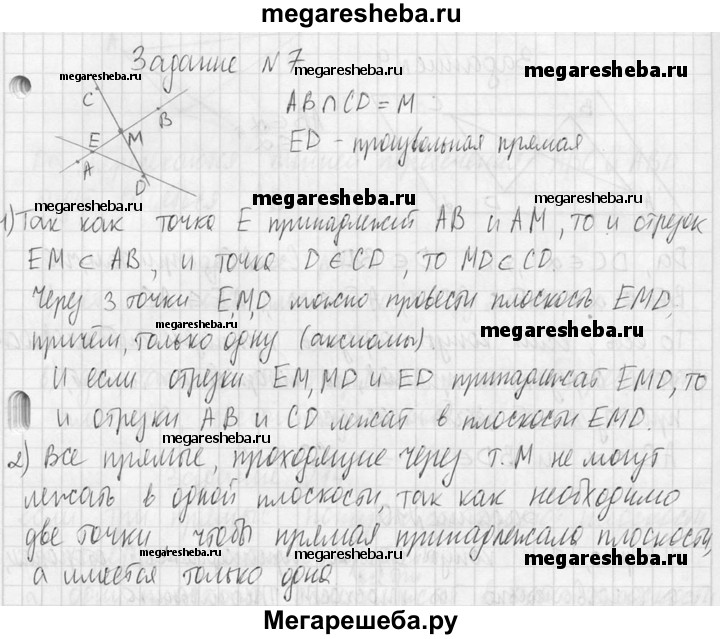 megaresheba.ru
Задание N 7
megaresheba.ru
megaresheba.ru
C
B
E
M
A
D
AB∩CD=M
ED - произвольная прямая
megaresheba.ru
megaresheba.ru
megaresheba.ru
1) Так как точка E принадлежит AB и AM, то и отрезок
EM⊂AB, и точка D∈CD, то MD⊂CD.
Через 3 точки E,M,D можно провести плоскость EMD,
megaresheba.ru
megaresheba.ru
причём, только одну (аксиомы)
И если отрезки EM, MD и ED принадлежат EMD, то
и отрезки AB и CD лежат в плоскости EMD.
megaresheba.ru
megaresheba.ru
2) Все прямые, проходящие через т. M не могут
лежать в одной плоскости, так как необходимо
две точки, чтобы прямая принадлежала плоскости,
megaresheba.ru
megaresheba.ru
megaresheba.ru
а имеется только одна
Мегарешеба.ру